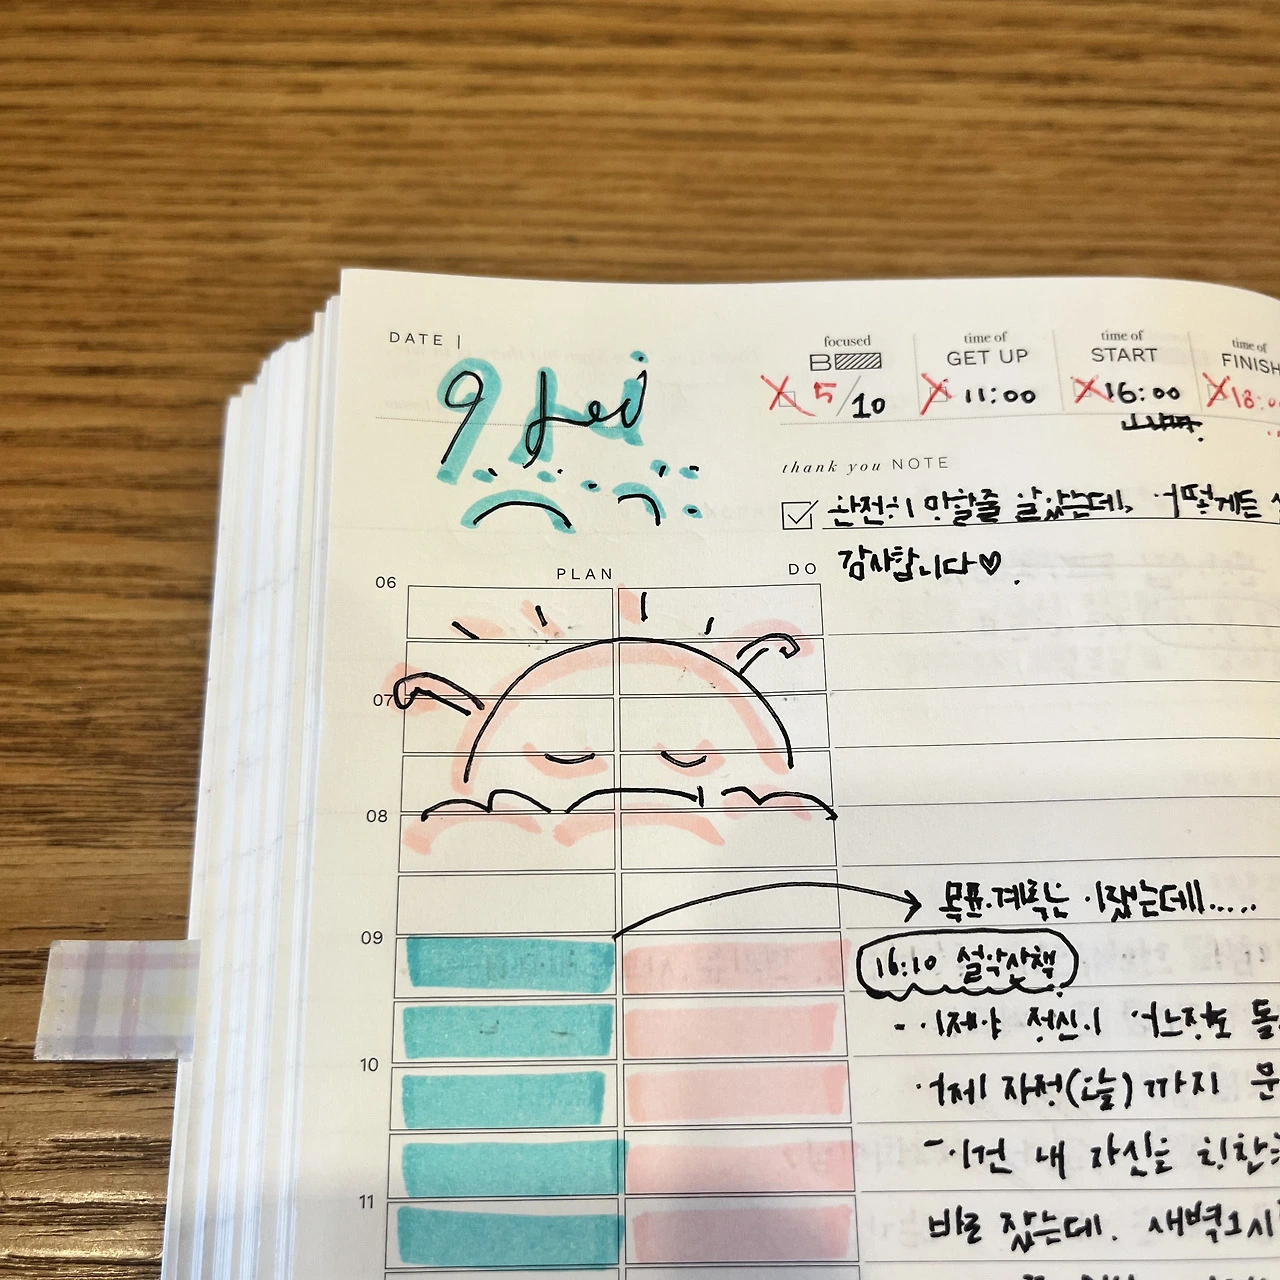 DATE |
9
focused
time of
GET UP
time of
START
time of
FINISH
5/10
11:00
16:00
18:0
thank you NOTE
완전히 망할줄 알았는데, 어떻게든
감사합니다♡.
PLAN DO
06
07
08
목표.계획은 이랬는데.....
09
16:10 설악산책
- 이제야 정신이 어느정도 돌
10
어제 자정(오늘)까지 문
- 이건 내 자신을
11
바로 잤는데. 새벽 1시